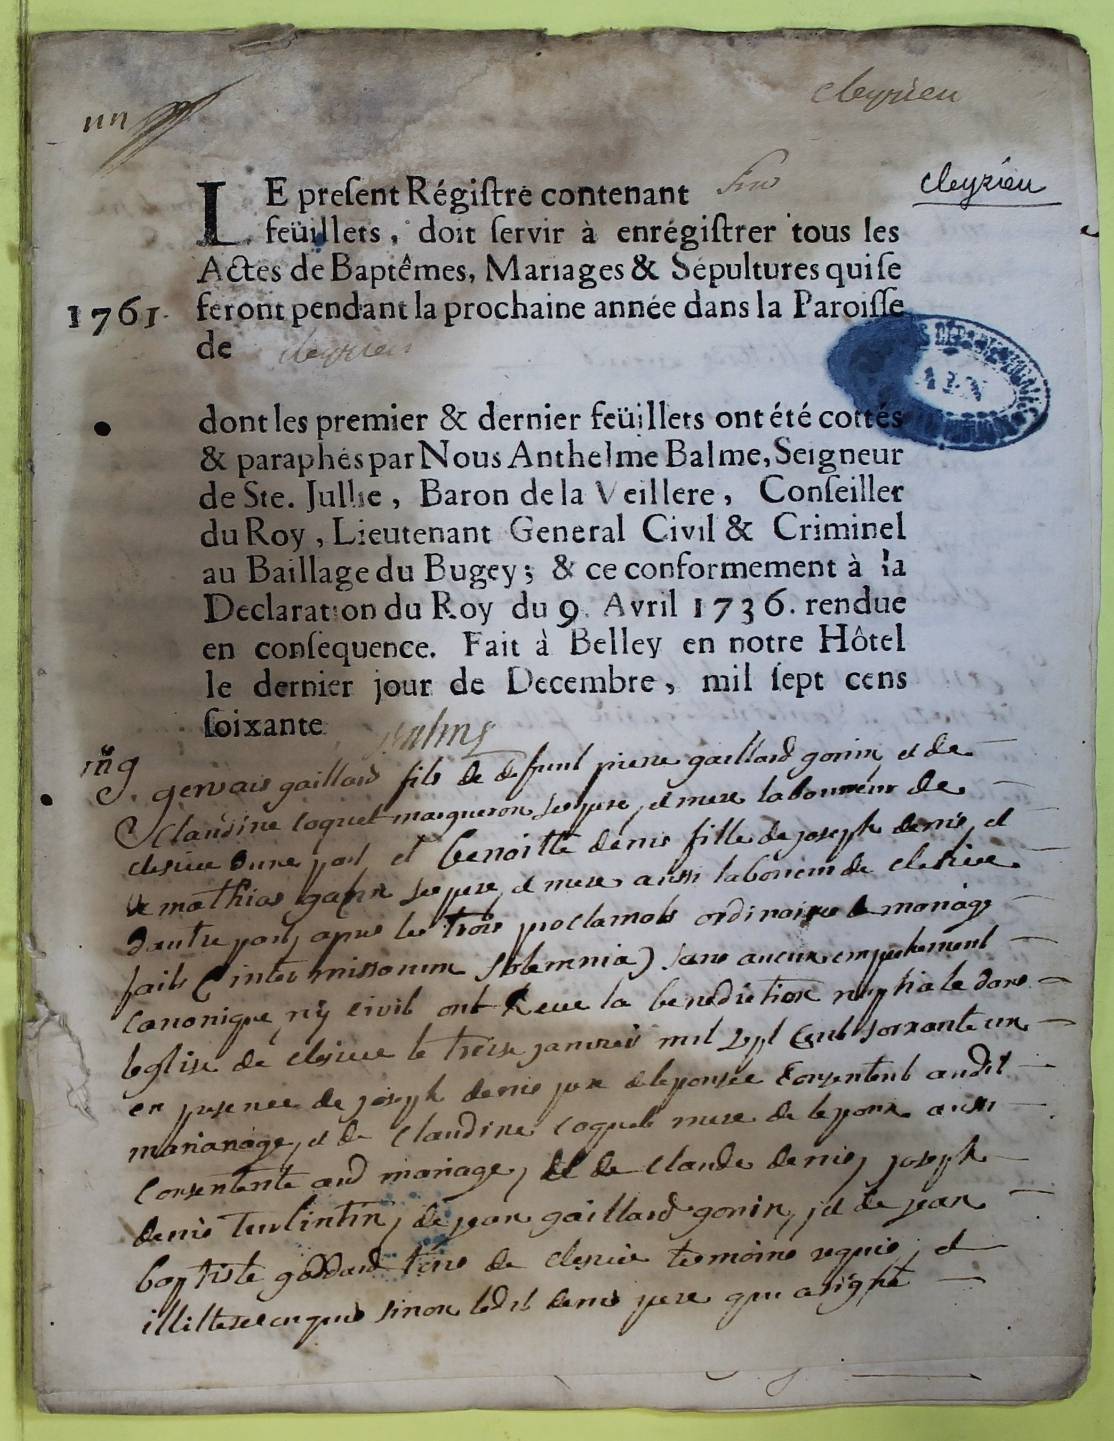 un
cleyrieu
cleyzieu
LE preſent Régiſtre contenant
feüillets, doit ſervir à enrégiſtrer tous les
Actes de Baptêmes, Mariages & Sépultures qui ſe
1761. feront pendant la prochaine année dans la Paroiſſe
de cleyzieu
dont les premier & dernier feüillets ont été cottés
& paraphés par Nous Anthelme Balme, Seigneur
de Ste. Jullie, Baron de la Veillere, Conſeiller
du Roy, Lieutenant General Civil & Criminel
au Baillage du Bugey; & ce conformement à la
Declaration du Roy du 9. Avril 1736. rendue
en conſequence. Fait à Belley en notre Hôtel
le dernier jour de Decembre, mil ſept cens
ſoixante
gervais gaillard fils de defunt pierre gaillard gonin et de
Claudine coquet marqueron ses pere et mere laboureur de
clesieu dune part et benoitte denis fille de joseph denis et
de mathias ses pere et mere aussi laboureur de clesieu
dautre part, apres les trois proclamats ordinaires de mariage
faits (inter missarum solemnia) sans aucun empechement
canonique ny civil ont receu la benediction nuptiale dans
leglise de clesieu le treise janvier mil sept cent soixante un
en presence de joseph denis pere de leponsée consentent audit
marianage, et de claudine coquet mere de lepoux aussi
consentente aud mariage, et de claude denis, joseph
denis, de jean gaillard gonin, et de jean
baptiste goddard tous de clesieu temoins requis, et
illitteres enquis sinon ledit denis pere qui a signé